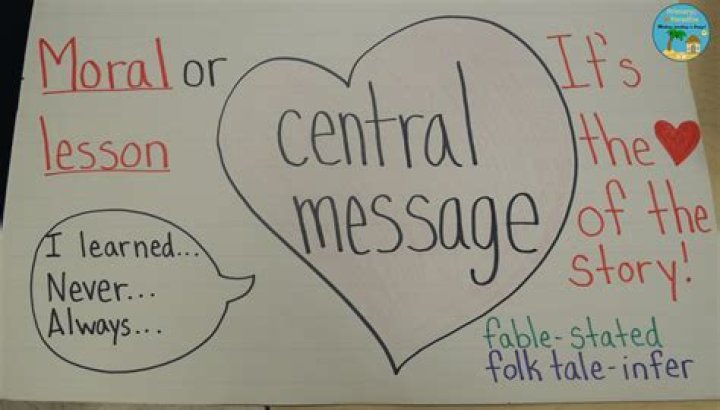 Moral or
lesson
central
message
It's
the ❤
of the
story!
I learned...
Never...
Always...
fable-stated
folk tale-infer